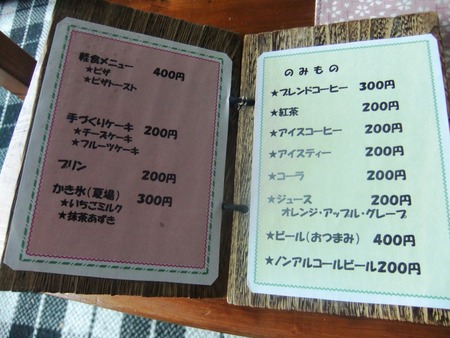 軽食メニュー 400円
★ピザ
★ピザトースト
手づくりケーキ 200円
★チーズケーキ
★フルーツケーキ
プリン 200円
かき氷(夏場) 300円
★いちごミルク
★抹茶あずき
のみもの
★ブレンドコーヒー 300円
★紅茶 200円
★アイスコーヒー 200円
★アイスティー 200円
★コーラ 200円
★ジュース 200円
オレンジ・アップル・グレープ
★ビール(おつまみ) 400円
★ノンアルコールビール 200円